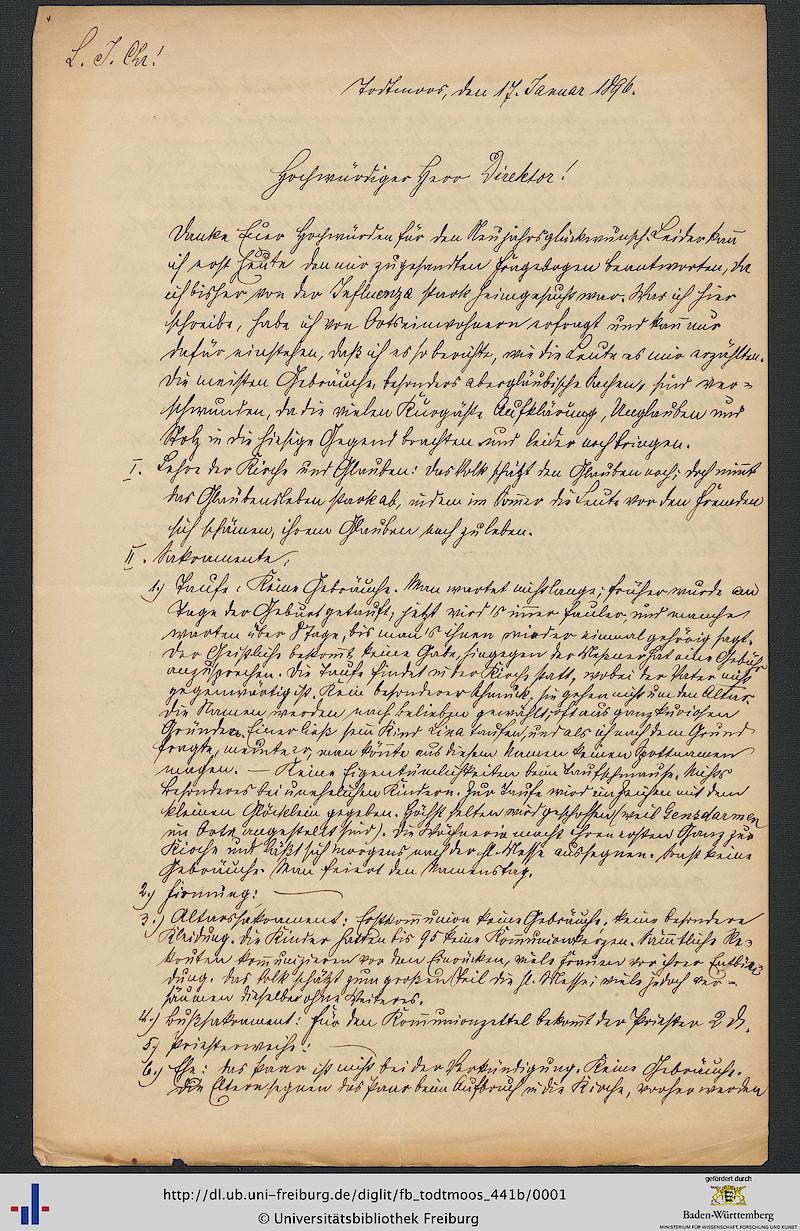 L. J. Chr!
Todtmoos, den 17. Januar 1896.
Hochwürdiger Herr Direktor!
Danke Euer Hochwürden für den Neujahrsglückwunsch. Leider kan̄
ich erst heute den mir zugesandten Fragebogen beantworten, da
ich bisher von der Influenza stark heimgesucht war. Was ich hier
schreibe, habe ich von Ortseinwohnern erfragt und kan̄ nur
dafür einstehen, daß ich es so berichte, wie die Leute es mir erzählten.
Die meisten Gebräuche, besonders abergläubische Sachen, sind ver-
schwunden, da die vielen Kurgäste Aufklärung, Unglauben und
Stolz in die hiesige Gegend brachten und leider noch bringen.
I. Lehre der Kirche und Glauben: das Volk schätzt den Glauben noch; doch nim̄t
das Glaubensleben stark ab, indem im Som̄er die Leute vor den Fremden
sich schämen, ihrem Glauben nach zu leben.
II. Sakramente,
1.) Taufe: Keine Gebräuche. Man wartet nicht lange; früher wurde am
Tage der Geburt getauft; jetzt wird's im̄er fauler, und manche
warten über 8 Tage, bis man's ihnen wieder einmal gehörig sagt.
Der Geistliche bekom̄t keine Gabe, hingegen der Meßner hat eine Gebühr
anzusprechen. Die Taufe findet in der Kirche statt, wobei der Vater nicht
gegenwärtig ist. Kein besonderer Schmuck, sie gehen nicht um den Altar.
Die Namen werden nach Belieben gewählt, oft aus ganz kuriosen
Gründen. Einer ließ sein Kind Lina taufen, und als ich nach dem Grund
fragte, meinte er, man kön̄te aus diesem Namen keinen Spottnamen
machen. — Keine Eigentümlichkeiten beim Taufschmause. Nichts
besonderes bei unehelichen Kindern. Zur Taufe wird ein Zeichen mit dem
kleinen Glöcklein gegeben. Höchst selten wird geschossen (weil Gensdarmen
im Orte angestellt sind). Die Wöchnerin macht ihren ersten Gang zur
Kirche und läßt sich morgens nach der hl. Messe aussegnen. Sonst keine
Gebräuche. Man feiert den Namenstag.
2.) Firmung: —
3.) Altarssakrament: Erstkom̄union keine Gebräuche, keine besondere
Kleidung. Die Kinder hatten bis 95 keine Kom̄unionkerzen. Sämtliche Re-
kruten kom̄unizieren vor dem Einrücken, viele Frauen vor ihrer Entbin-
dung. Das Volk schätzt zum großen Teil die hl. Messe; viele jedoch ver-
säumen dieselbe ohne Weiteres.
4.) Bußsakrament: Für den Kom̄unionzettel bekom̄t der Priester 2 d.
5.) Priesterweihe: —
6.) Ehe: das Paar ist nicht bei der Verkündigung. Keine Gebräuche.
Die Eltern segnen das Paar beim Aufbruch in die Kirche, vorher werden
http://dl.ub.uni-freiburg.de/diglit/fb_todtmoos_441b/0001
© Universitätsbibliothek Freiburg
gefördert durch
Baden-Württemberg
MINISTERIUM FÜR WISSENSCHAFT, FORSCHUNG UND KUNST